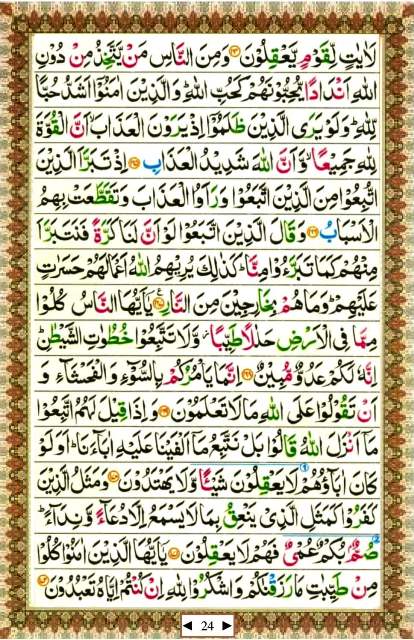 لَاٰيٰتٍ لِّقَوْمٍ يَّعْقِلُوْنَ ۝ وَمِنَ النَّاسِ مَنْ يَّتَّخِذُ مِنْ دُوْنِ
اللّٰهِ اَنْدَادًا يُّحِبُّوْنَهُمْ كَحُبِّ اللّٰهِ ؕ وَالَّذِيْنَ اٰمَنُوْٓا اَشَدُّ حُبًّا
لِّلّٰهِ ؕ وَلَوْ يَرَى الَّذِيْنَ ظَلَمُوْٓا اِذْ يَرَوْنَ الْعَذَابَ اَنَّ الْقُوَّةَ
لِلّٰهِ جَمِيْعًا ۙ وَّاَنَّ اللّٰهَ شَدِيْدُ الْعَذَابِ ۝ اِذْ تَبَرَّاَ الَّذِيْنَ
اتُّبِعُوْا مِنَ الَّذِيْنَ اتَّبَعُوْا وَرَاَوُا الْعَذَابَ وَتَقَطَّعَتْ بِهِمُ
الْاَسْبَابُ ۝ وَقَالَ الَّذِيْنَ اتَّبَعُوْا لَوْ اَنَّ لَنَا كَرَّةً فَنَتَبَرَّاَ
مِنْهُمْ كَمَا تَبَرَّءُوْا مِنَّا ؕ كَذٰلِكَ يُرِيْهِمُ اللّٰهُ اَعْمَالَهُمْ حَسَرٰتٍ
عَلَيْهِمْ ؕ وَمَا هُمْ بِخٰرِجِيْنَ مِنَ النَّارِ ۝ يٰٓاَيُّهَا النَّاسُ كُلُوْا
مِمَّا فِى الْاَرْضِ حَلٰلًا طَيِّبًا ۖ وَّلَا تَتَّبِعُوْا خُطُوٰتِ الشَّيْطٰنِ ؕ
اِنَّهٗ لَكُمْ عَدُوٌّ مُّبِيْنٌ ۝ اِنَّمَا يَاْمُرُكُمْ بِالسُّوْٓءِ وَالْفَحْشَآءِ وَ
اَنْ تَقُوْلُوْا عَلَى اللّٰهِ مَا لَا تَعْلَمُوْنَ ۝ وَاِذَا قِيْلَ لَهُمُ اتَّبِعُوْا
مَآ اَنْزَلَ اللّٰهُ قَالُوْا بَلْ نَتَّبِعُ مَآ اَلْفَيْنَا عَلَيْهِ اٰبَآءَنَا ؕ اَوَلَوْ
كَانَ اٰبَآؤُهُمْ لَا يَعْقِلُوْنَ شَيْـًٔا وَّلَا يَهْتَدُوْنَ ۝ وَمَثَلُ الَّذِيْنَ
كَفَرُوْا كَمَثَلِ الَّذِىْ يَنْعِقُ بِمَا لَا يَسْمَعُ اِلَّا دُعَآءً وَّنِدَآءً ؕ
صُمٌّۢ بُكْمٌ عُمْىٌ فَهُمْ لَا يَعْقِلُوْنَ ۝ يٰٓاَيُّهَا الَّذِيْنَ اٰمَنُوْا كُلُوْا
مِنْ طَيِّبٰتِ مَا رَزَقْنٰكُمْ وَاشْكُرُوْا لِلّٰهِ اِنْ كُنْتُمْ اِيَّاهُ تَعْبُدُوْنَ ۝
24